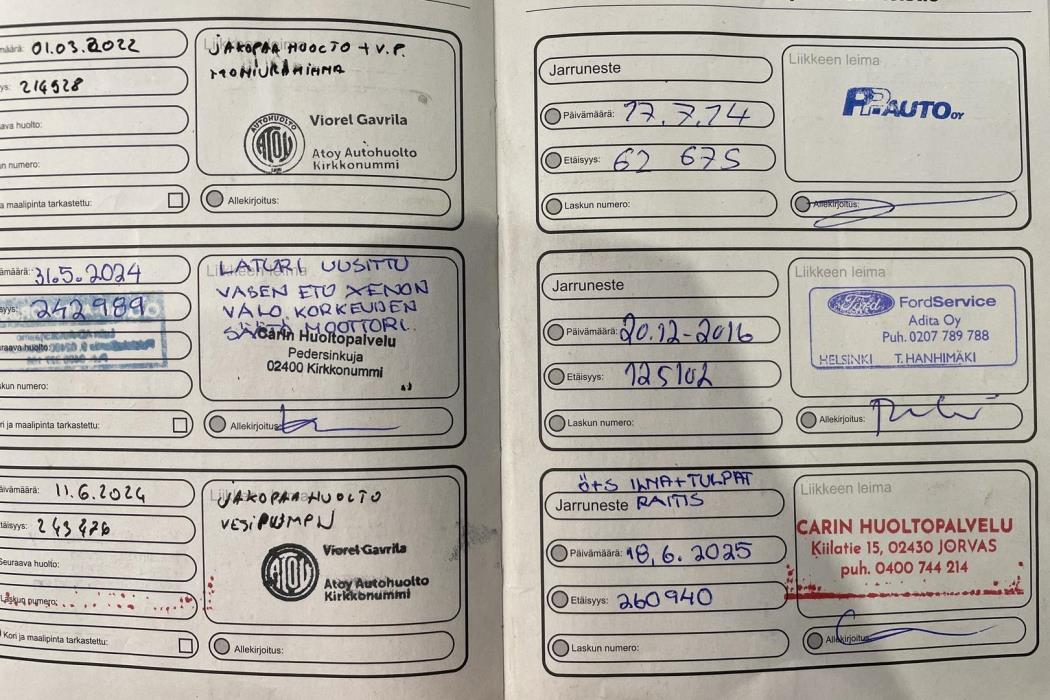 määrä: 01.03.2022
ys: 214928
ava huolto:
n numero:
a maalipinta tarkastettu:
JAKOPAA HUOCTO + V.P.
MONIURAHIHNA
AUTOHUOLTO
ATOY
Viorel Gavrila
Atoy Autohuolto
Kirkkonummi
Allekirjoitus:
ämäärä: 31.5.2024
syys: 242 989
uraava huolto:
skun numero:
ri ja maalipinta tarkastettu:
Liikkeen leima
LATURI UUSITTU
VASEN ETU XENON
VALO KORKEUDEN
SÄÄTÖ MOOTTORI.
Carin Huoltopalvelu
Pedersinkuja
02400 Kirkkonummi
Allekirjoitus:
äivämäärä: 11.6.2024
täisyys: 243 476
Seuraava huolto:
Laskun numero:
Kori ja maalipinta tarkastettu:
JAKOPAA HUOLTO
VESIPUMPN
ATOY
Viorel Gavrila
Atoy Autohuolto
Kirkkonummi
Allekirjoitus:
Jarruneste
Päivämäärä: 17.7.14
Etäisyys: 62 675
Laskun numero:
Liikkeen leima
PP AUTO OY
Allekirjoitus:
Jarruneste
Päivämäärä: 20.12-2016
Etäisyys: 125102
Laskun numero:
Liikkeen leima
Ford
FordService
Adita Oy
Puh. 0207 789 788
HELSINKI T. HANHIMÄKI
Allekirjoitus:
Ö+S ILMA+TULPAT
Jarruneste RAITIS
Päivämäärä: 18.6.2025
Etäisyys: 260940
Laskun numero:
Liikkeen leima
CARIN HUOLTOPALVELU
Kiilatie 15, 02430 JORVAS
puh. 0400 744 214
Allekirjoitus: